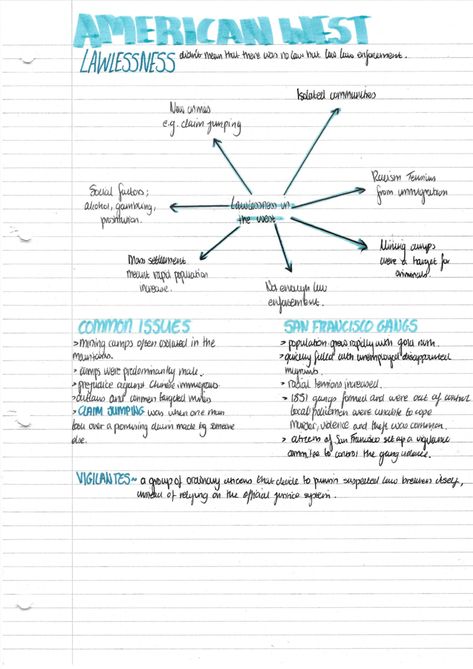 AMERICAN WEST
LAWLESSNESS didn't mean that there was no law but low law enforcement.
Isolated communities
New crimes
e.g. claim jumping
Social factors;
alcohol, gambling,
prostitution.
Lawlessness in
the west
Racism Tensions
from immigration
Mining camps
were a target for
criminals.
Mass settlement
meant rapid population
increase.
Not enough law
enforcement.
COMMON ISSUES
> mining camps often isolated in the
mountains.
> camps were predominantly male.
> prejudice against Chinese immigrants
> outlaws and conmen targeted mines
> CLAIM JUMPING was when one man
took over a promising claim made by someone
else.
SAN FRANCISCO GANGS
> population grew rapidly with gold rush.
> quickly filled with unemployed disappointed
migrants.
> racial tensions increased.
> 1851 gangs formed and were out of control
local policemen were unable to cope
murder, violence and theft was common.
> citizens of San Francisco set up a vigilance
committee to control the gang violence.
VIGILANTES ~ a group of ordinary citizens that decide to punish suspected law breakers itself,
instead of relying on the official justice system.